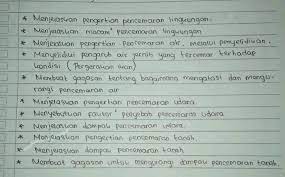 * Menjelaskan pengertian pencemaran lingkungan.
* Menjelaskan macam² pencemaran lingkungan
* Menjelaskan pengertian pencemaran air, melalui penyelidikan.
* Menyelidiki pengaruh air jernih yang tercemar terhadap
kondisi (Pergerakan ikan)
* Membuat gagasan tentang bagaimana mengatasi dan mengu-
rangi pencemaran air
* Menjelaskan pengertian pencemaran udara.
* Menyebutkan faktor² penyebab pencemaran udara
* Menjelaskan dampak pencemaran udara.
* Menjelaskan pengertian pencemaran tanah.
* Menjelaskan dampak pencemaran tanah
* Membuat gagasan untuk mengurangi dampak pencemaran tanah.